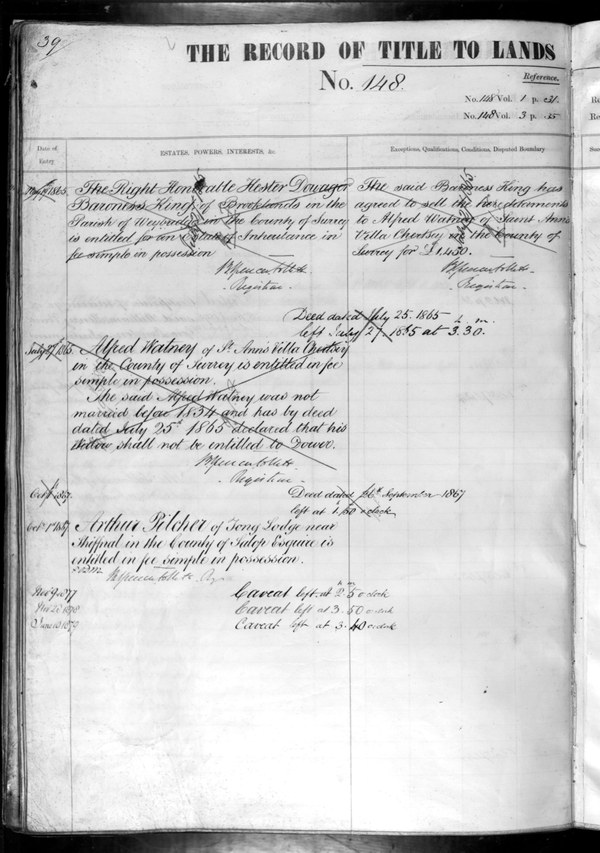 39
THE RECORD OF TITLE TO LANDS
No. 148.
Reference.
No. 148 Vol. 1 p. 231.
No. 148 Vol. 3 p. 35
Date of Entry
ESTATES, POWERS, INTERESTS, &c.
Exceptions, Qualifications, Conditions, Disputed Boundary
1865.
The Right Honorable Hester Dowager
Baroness King of Brooklands in the
Parish of Weybridge in the County of Surrey
is entitled for an Estate of Inheritance in
fee simple in possession
Registrar.
The said Baroness King has
agreed to sell the hereditaments
to Alfred Watney of Saint Anns
Villa Chertsey in the County of
Surrey for £1,450.
Registrar.
Deed dated July 25. 1865
left July 27. 1865 at 3.30.
h m
July 27 1865.
Alfred Watney of St. Ann's Villa Chertsey
in the County of Surrey is entitled in fee
simple in possession.
The said Alfred Watney was not
married before 1834 and has by deed
dated July 25th 1865 declared that his
Widow shall not be entitled to Dower.
Registrar.
Oct 1 1867.
Deed dated 26th September 1867
left at 1,50 o'clock
Oct 1st 1867
Arthur Pilcher of Tong Lodge near
Shiffnal in the County of Salop Esquire is
entitled in fee simple in possession.
Nov 9 1877
Caveat left at 2.50 o'clock
h m
1878
Caveat left at 3.50 o'clock
June 1879
Caveat left at 3.40 o'clock